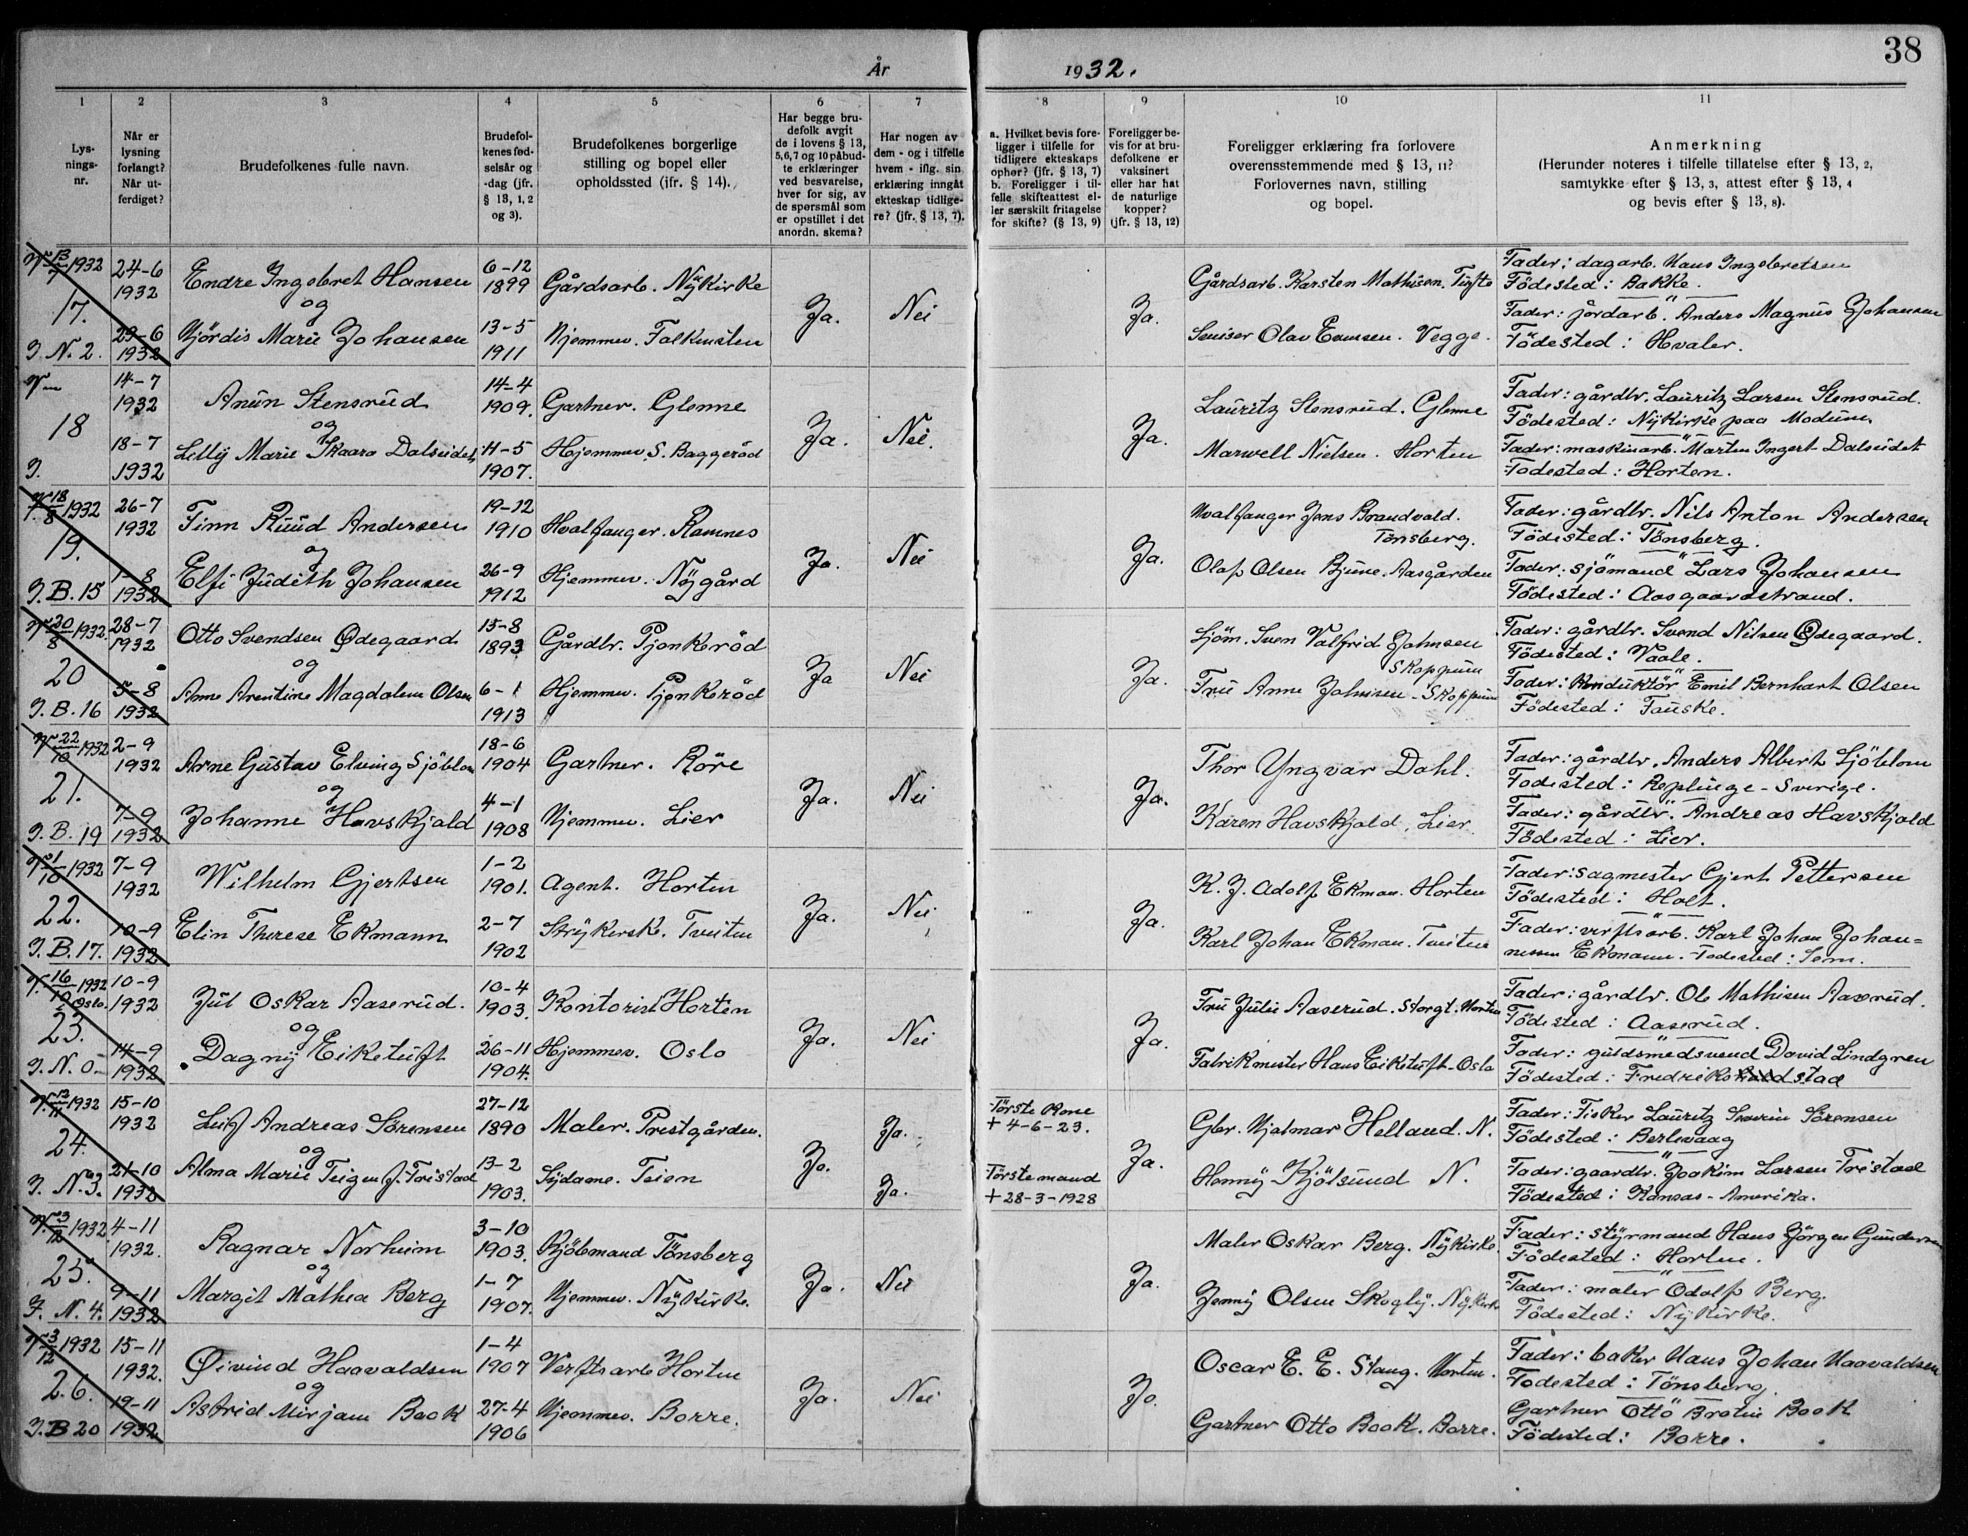 År 1932.
38
1 2 3 4 5 6 7 8 9 10 11
Lys-
nings-
nr.
Når er
lysning
forlangt?
Når ut-
ferdiget?
Brudefolkenes fulle navn.
Brudefol-
kenes fød-
selsår og
-dag (jfr.
§ 13, 1, 2
og 3).
Brudefolkenes borgerlige
stilling og bopel eller
opholdssted (ifr. § 14).
Har begge bru-
defolk avgit
de i lovens § 13,
5,6,7 og 10 påbud-
te erklæringer
ved besvarelse,
hver for sig, av
de spørsmål som
er opstillet i det
anordn. skema?
Har nogen av
dem - og i tilfelle
hvem - iflg. sin
erklæring inngått
ekteskap tidlige-
re? (jfr. § 13, 7).
a. Hvilket bevis fore-
ligger i tilfelle for
tidligere ekteskaps
ophør? (jfr. § 13, 7)
b. Foreligger i til-
felle skifteattest el-
ler særskilt fritagelse
for skifte? (§ 13, 9)
Foreligger be-
vis for at bru-
defolkene er
vaksinert
eller har hat
de naturlige
kopper?
(jfr. § 13, 12)
Foreligger erklæring fra forlovere
overensstemmende med § 13, 11?
Forlovernes navn, stilling
og bopel.
Anmerkning
(Herunder noteres i tilfelle tillatelse efter § 13, 2,
samtykke efter § 13, 3, attest efter § 13, 4
og bevis efter § 13, 8).
V. 13/7 1932
17.
J. N. 2.
24-6
1932
29-6
1932
Endre Ingebret Hansen
og
Hjördis Marie Johansen
6-12
1899
13-5
1911
Gårdsarb. Nÿkirke
Hjemmev. Falkensten
Ja.
Nei
Ja.
Gårdsarb. Karsten Mathisen. Tufte
Olav Evensen. Vegge.
Fader: dagarb. Hans Ingebretsen
Födested: Bakke.
Fader: jördarb. Anders Magnus Johansen
Födested: Hvaler.
V.
18
J.
14-7
1932
18-7
1932
Anün Stensrud
og
Lelly Marie Skaara Dalseidet
14-4
1909.
11-5
1907.
Gartner. Glenne
Hjemmev. S. Baggeröd
Ja.
Nei.
Ja.
Lauritz Stensrud. Glenne
Maxwell Nielsen. Horten
Fader: gårdbr. Lauritz Larsen Stensrud.
Födested: Nÿkirke paa Modum
Fader: maskinarb. Marten Ingert Dalseidet
Födested: Horten.
V. 18/8 1932
19.
J. B. 15
26-7
1932
1-8
1932
Finn Ruud Andersen
og
Elfi Judith Johansen
19-12
1910
26-9
1912
Hvalfanger. Ramnes
Hjemmev. Nÿgård
Ja.
Nei
Ja.
Hvalfanger Jens Brandvald.
Tønsberg.
Olaf Olsen Bjune. Aasgården
Fader: gårdbr. Nils Anton Andersen
Födested: Tønsberg.
Fader: sjömand Lars Johansen
Födested: Aasgaardstrand.
V. 20/8 1932.
20
J. B. 16
28-7
1932
5-8
1932
Otto Svendsen Ødegaard
og
Anne Arentine Magdalene Olsen
15-8
1893
6-1
1913
Gårdbr. Pjonkeröd
Hjemmev. Pjonkeröd
Ja
Nei
Ja.
Sjöm. Sven Valfrid Johnsen
Skoppum
Fru Anne Johnsen. Skoppum
Fader: gårdbr. Svend Nilsen Ødegaard.
Födested: Vaale.
Fader: Konduktör Emil Bernhart Olsen
Födested: Fauske.
V. 22/10 1932
21.
J. B. 19
2-9
1932
7-9
1932
Arne Gustav Elving Sjöblom
og
Johanne Havskjold
18-6
1904
4-1
1908
Gartner. Röre
Hjemmev. Lier
Ja.
Nei
Ja.
Thor Yngvar Dahl.
Karen Havskjold. Lier
Fader: gårdbr. Anders Albert Sjöblom
Födested: Replinge-Sverige.
Fader: gårdbr. Andreas Havskjold
Födested: Lier.
V. 1/10 1932
22.
J. B. 17.
7-9
1932
10-9
1932
Wilhelm Gjertsen
Elin Therese Ekmann
1-2
1901.
2-7
1902
Agent. Horten
Strÿkerske. Tveiten
Ja.
Nei
Ja.
K. J. Adolf Ekman. Horten
Karl Johan Ekman. Tveiten
Fader: sagmester Gjert Pettersen
Födested: Holt.
Fader: verftsarb. Karl Johan Johan=
nessen Ekmann. Födested: Sem.
V. 16/10 1932
Oslo.
23.
J. N. O.
10-9
1932
14-9
1932
Jul Oskar Aaserud.
og
Dagnÿ Eiketuft
10-4
1903.
26-11
1904.
Kontorist Horten
Hjemmev. Oslo
Ja.
Nei
Ja.
Fru Julie Aaserud. Storgt. Horten
Fabrikmester Hans Eiketuft-Oslo
Fader: gårdbr. Ole Mathisen Aaserud.
Födested: Aaserud.
Fader: guldsmedsvend David Lindgren
Födested: Fredrikstad
V. 12/11 1932
24.
J. N. 3.
15-10
1932
21-10
1932
Leif Andreas Sörensen
og
Alma Marie Teigen f. Fristad
27-12
1890
13-2
1903.
Maler. Prestgården.
Sÿdame. Teien
Ja.
Ja.
Ja.
Første Kone
+ 4-6-23.
Første mand
+ 28-3-1928
Ja.
Gbr. Hjalmar Helland. N.
Hennÿ Kjölsund N.
Fader: Fisker Lauritz Severin Sörensen
Födested: Berlevaag
Fader: gaardbr. Joakim Larsen Fristad
Födested: Kansas-Amerika.
V. 3/12 1932
25.
J. N. 4.
4-11
1932.
9-11
1932
Ragnar Norheim
og
Margit Mathea Berg
3-10
1903.
1-7
1907.
Kjöbmand Tönsberg
Hjemmev. Nÿkirke.
Ja.
Nei
Ja.
Maler Oskar Berg. Nÿkirke.
Jennÿ Olsen Skoglÿ. Nÿkirke
Fader: stÿrmand Hans Jörgen Gundersen
Födested: Horten.
Fader: maler Odolf Berg.
Födested: Nykirke.
V. 3/12 1932
26.
J. B 20
15-11
1932.
19-11
1932
Øivind Haavaldsen
og
Astrid Mirjam Book
1-4
1907
27-4
1906
Verftsarb Horten
Hjemmev. Borre.
Ja.
Nei
Ja.
Oscar E. E. Stang. Horten.
Gartner Otto Book. Borre.
Fader: baker Hans Johan Haavaldsen
Födested: Tönsberg.
Gartner Otto Book
Födested: Borre.